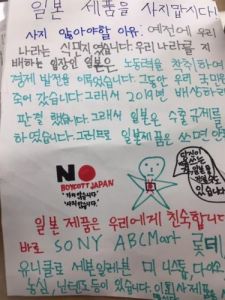 일본 제품을 사지맙시다!
사지 않아야할 이유. 예전에 우리
나라는 식민지 였습니다. 우리 나라를 지
배하는 입장인 일본은 노동력을 착취하여
경제 발전을 이뤄었습니다. 그동안 우리 국민은
죽어 갔습니다. 그래서 2019년 배상하라
판결 했습니다. 그래서 일본은 수출규제를
하였습니다. 그러므로 일본제품은 쓰면 안
NO
BOYCOTT JAPAN
'가지 않습니다'
'사지 않습니다'
있습니
일본 제품은 우리에게 친숙합니다
바로 SONY ABCMart 롯데
유니클로 세븐일레븐 미니스톱, 다이소
농심, 닌텐도 등이 있습니다.